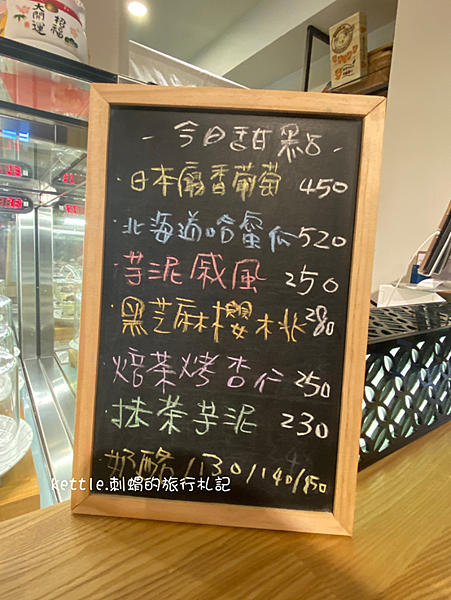 招福
大開運
- 今日甜點 -
·日本麝香葡萄 450
·北海道哈蜜瓜 520
·芋泥戚風 250
·黑芝麻櫻桃 280
·焙茶烤杏仁 250
·抹茶芋泥 230
·奶酪/130/140/150
kettle.刺蝟的旅行札記